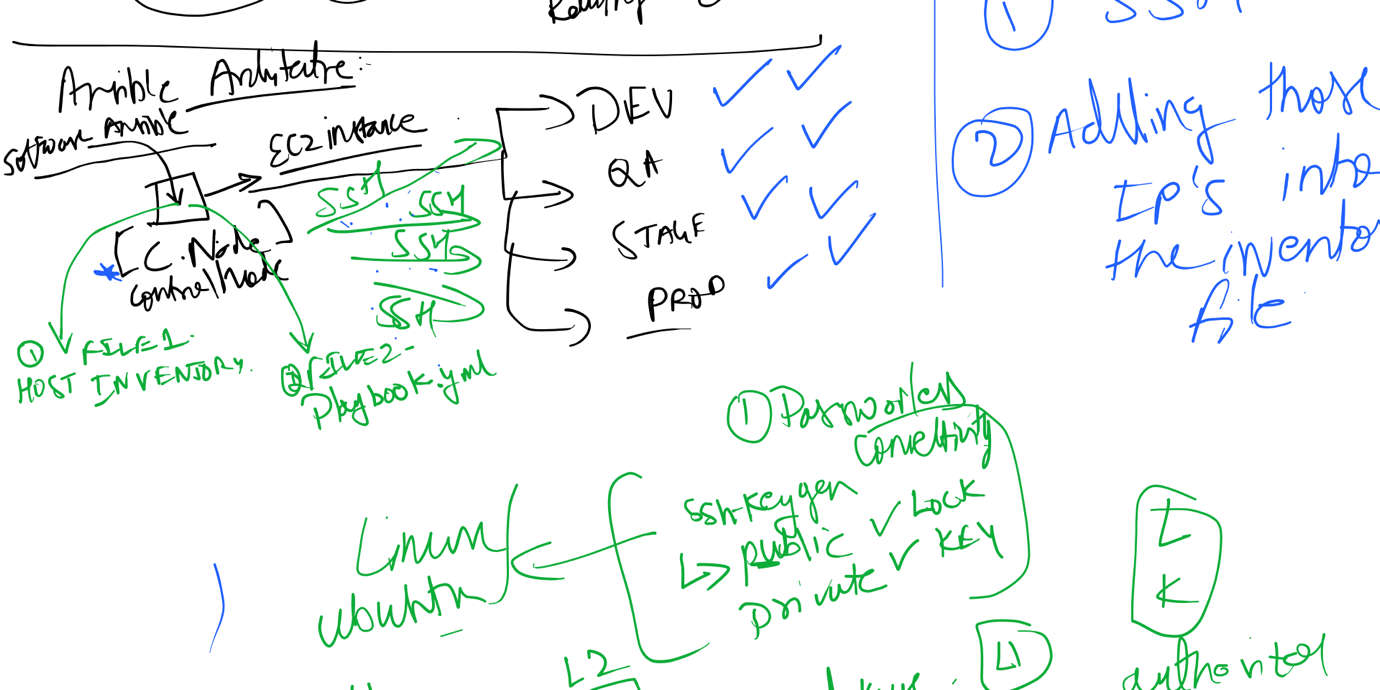 Ansible Architectre:-
software Ansible
EC2 instance
DEV
QA
STAGE
PROD
SSH
SSH
SSH
SSH
C.Node
Control Node
① FILE1.
HOST INVENTORY.
② FILE2-
Playbook.yml
①
② Adding those
IP's into
the invento
file
① Passworless
Connectivity
ssh-keygen
↳ public ✓ LOCK
private ✓ KEY
Linux
ubuntu
L
K
L2
L1